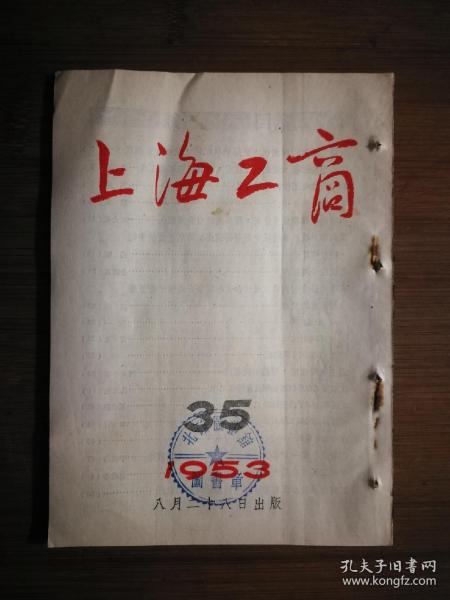 上海工商
35
1953
八月二十八日出版
孔夫子旧书网
www.kongfz.com